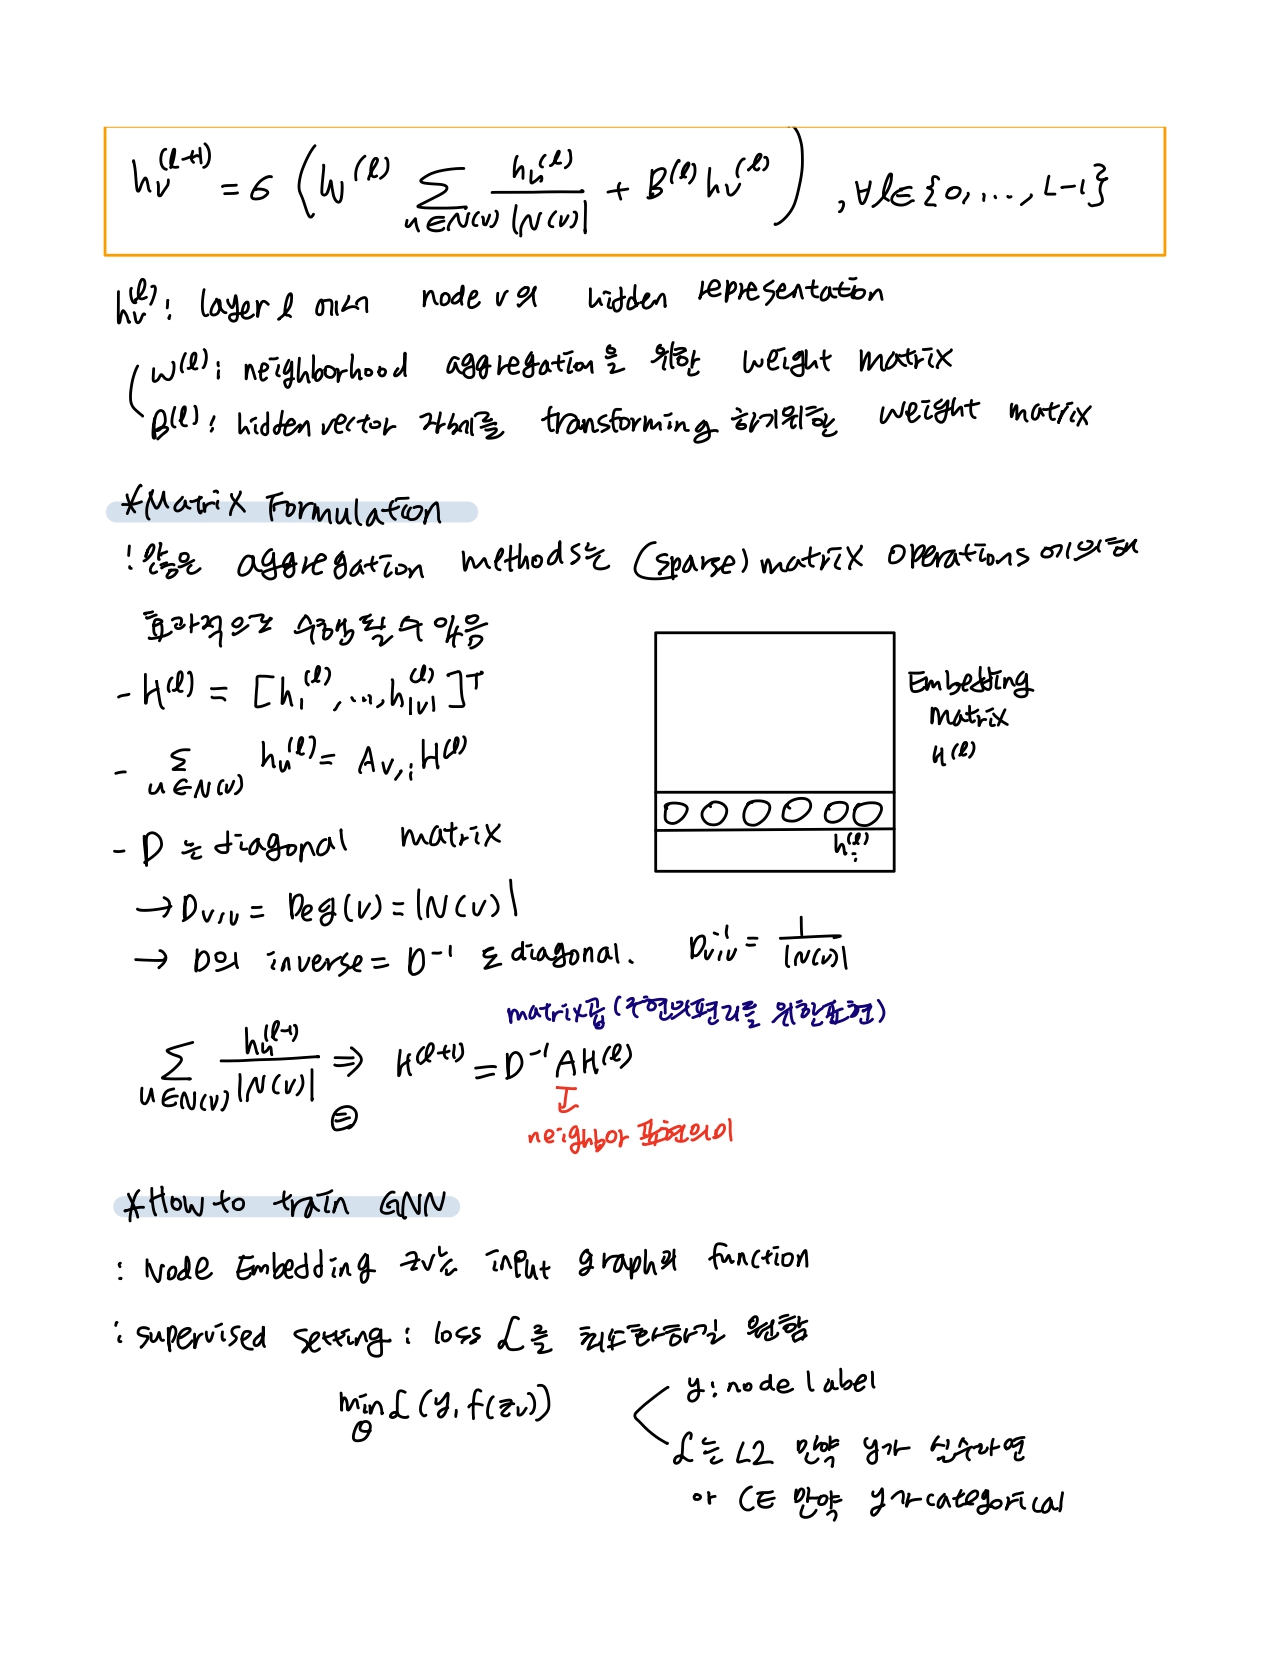 h_v^(l+1) = σ ( W^(l) Σ_{u∈N(v)} h_u^(l) / |N(v)| + B^(l) h_v^(l) ) , ∀l∈{0, ..., L-1}
h_v^(l) : layer l 에서 node v의 hidden representation
W^(l) : neighborhood aggregation을 위한 weight matrix
B^(l) : hidden vector 자체를 transforming 하기위한 weight matrix
*Matrix Formulation
: 많은 aggregation methods는 (sparse) matrix operations 에 의해
효과적으로 수행될 수 있음
- H^(l) = [h_1^(l), ..., h_|v|^(l)]^T
Embedding
matrix
H^(l)
- Σ_{u∈N(v)} h_u^(l) = A_{v,:} H^(l)
h_i^(l)
- D 는 diagonal matrix
→ D_{v,v} = Deg(v) = |N(v)|
→ D의 inverse = D^-1 도 diagonal. D_{v,v}^-1 = 1 / |N(v)|
matrix곱 (구현의 편리를 위한 표현)
Σ_{u∈N(v)} h_u^(l-1) / |N(v)| ⇒ H^(l+1) = D^-1 A H^(l)
=
neighbor 표현의미
*How to train GNN
: Node Embedding z_v는 input graph의 function
: supervised setting : loss L를 최소화하길 원함
min_Θ L (y, f(z_v))
y : node label
L는 L2 만약 y가 실수라면
or CE 만약 y가 categorical